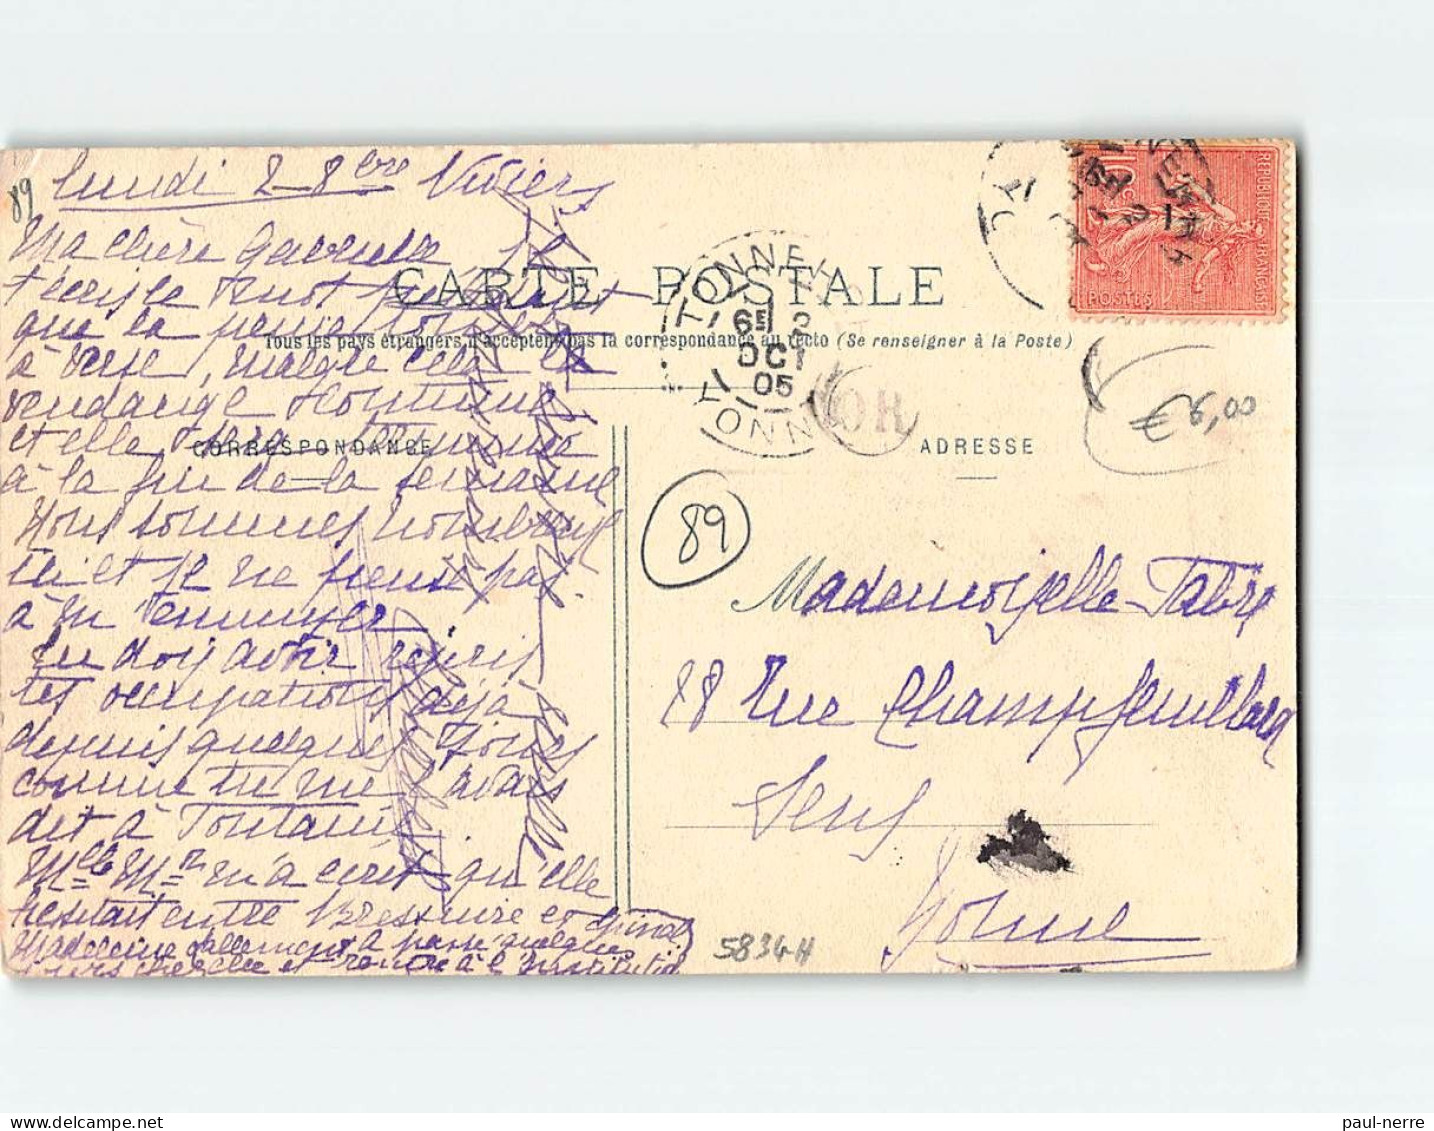 89
lundi 2 8bre Viviers
Ma chère Gabrielle Je
t'écris ce mot pendant
que la pluie tombe
à verse, malgré cela la
vendange continue
et elle sera terminée
à la fin de la semaine
Nous sommes nombreux
ici et je ne pense pas
à m'ennuyer
Tu dois avoir repris
tes occupations déjà
depuis quelques jours
comme tu me l'avais
dit à Fontaine
Melle M m'a écrit qu'elle
hésitait entre Bressuire et Epinal
Madeleine Lallement a passé quelques
jours chez elle et rentre à l'Institution
CARTE POSTALE
Tous les pays étrangers n'acceptent pas la correspondance au recto (Se renseigner à la Poste)
CORRESPONDANCE
ADRESSE
TONNERRE
6E 2
OCT
05
YONNE
OR
REPUBLIQUE FRANÇAISE
POSTES
10
€ 6,00
89
Mademoiselle Fabre
28 rue Champfeuillard
Sens
Yonne
5834H
paul-nerre